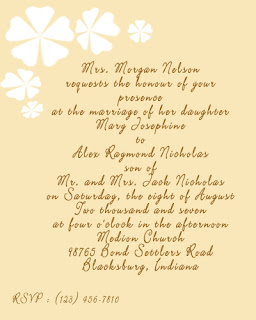 Mrs. Morgan Nelson
requests the honour of your
presence
at the marriage of her daughter
Mary Josephine
to
Alex Raymond Nicholas
son of
Mr. and Mrs. Jack Nicholas
on Saturday, the eight of August
Two thousand and seven
at four o'clock in the afternoon
Medion Church
98765 Bond Settlers Road
Blacksburg, Indiana
RSVP : (123) 456-7810